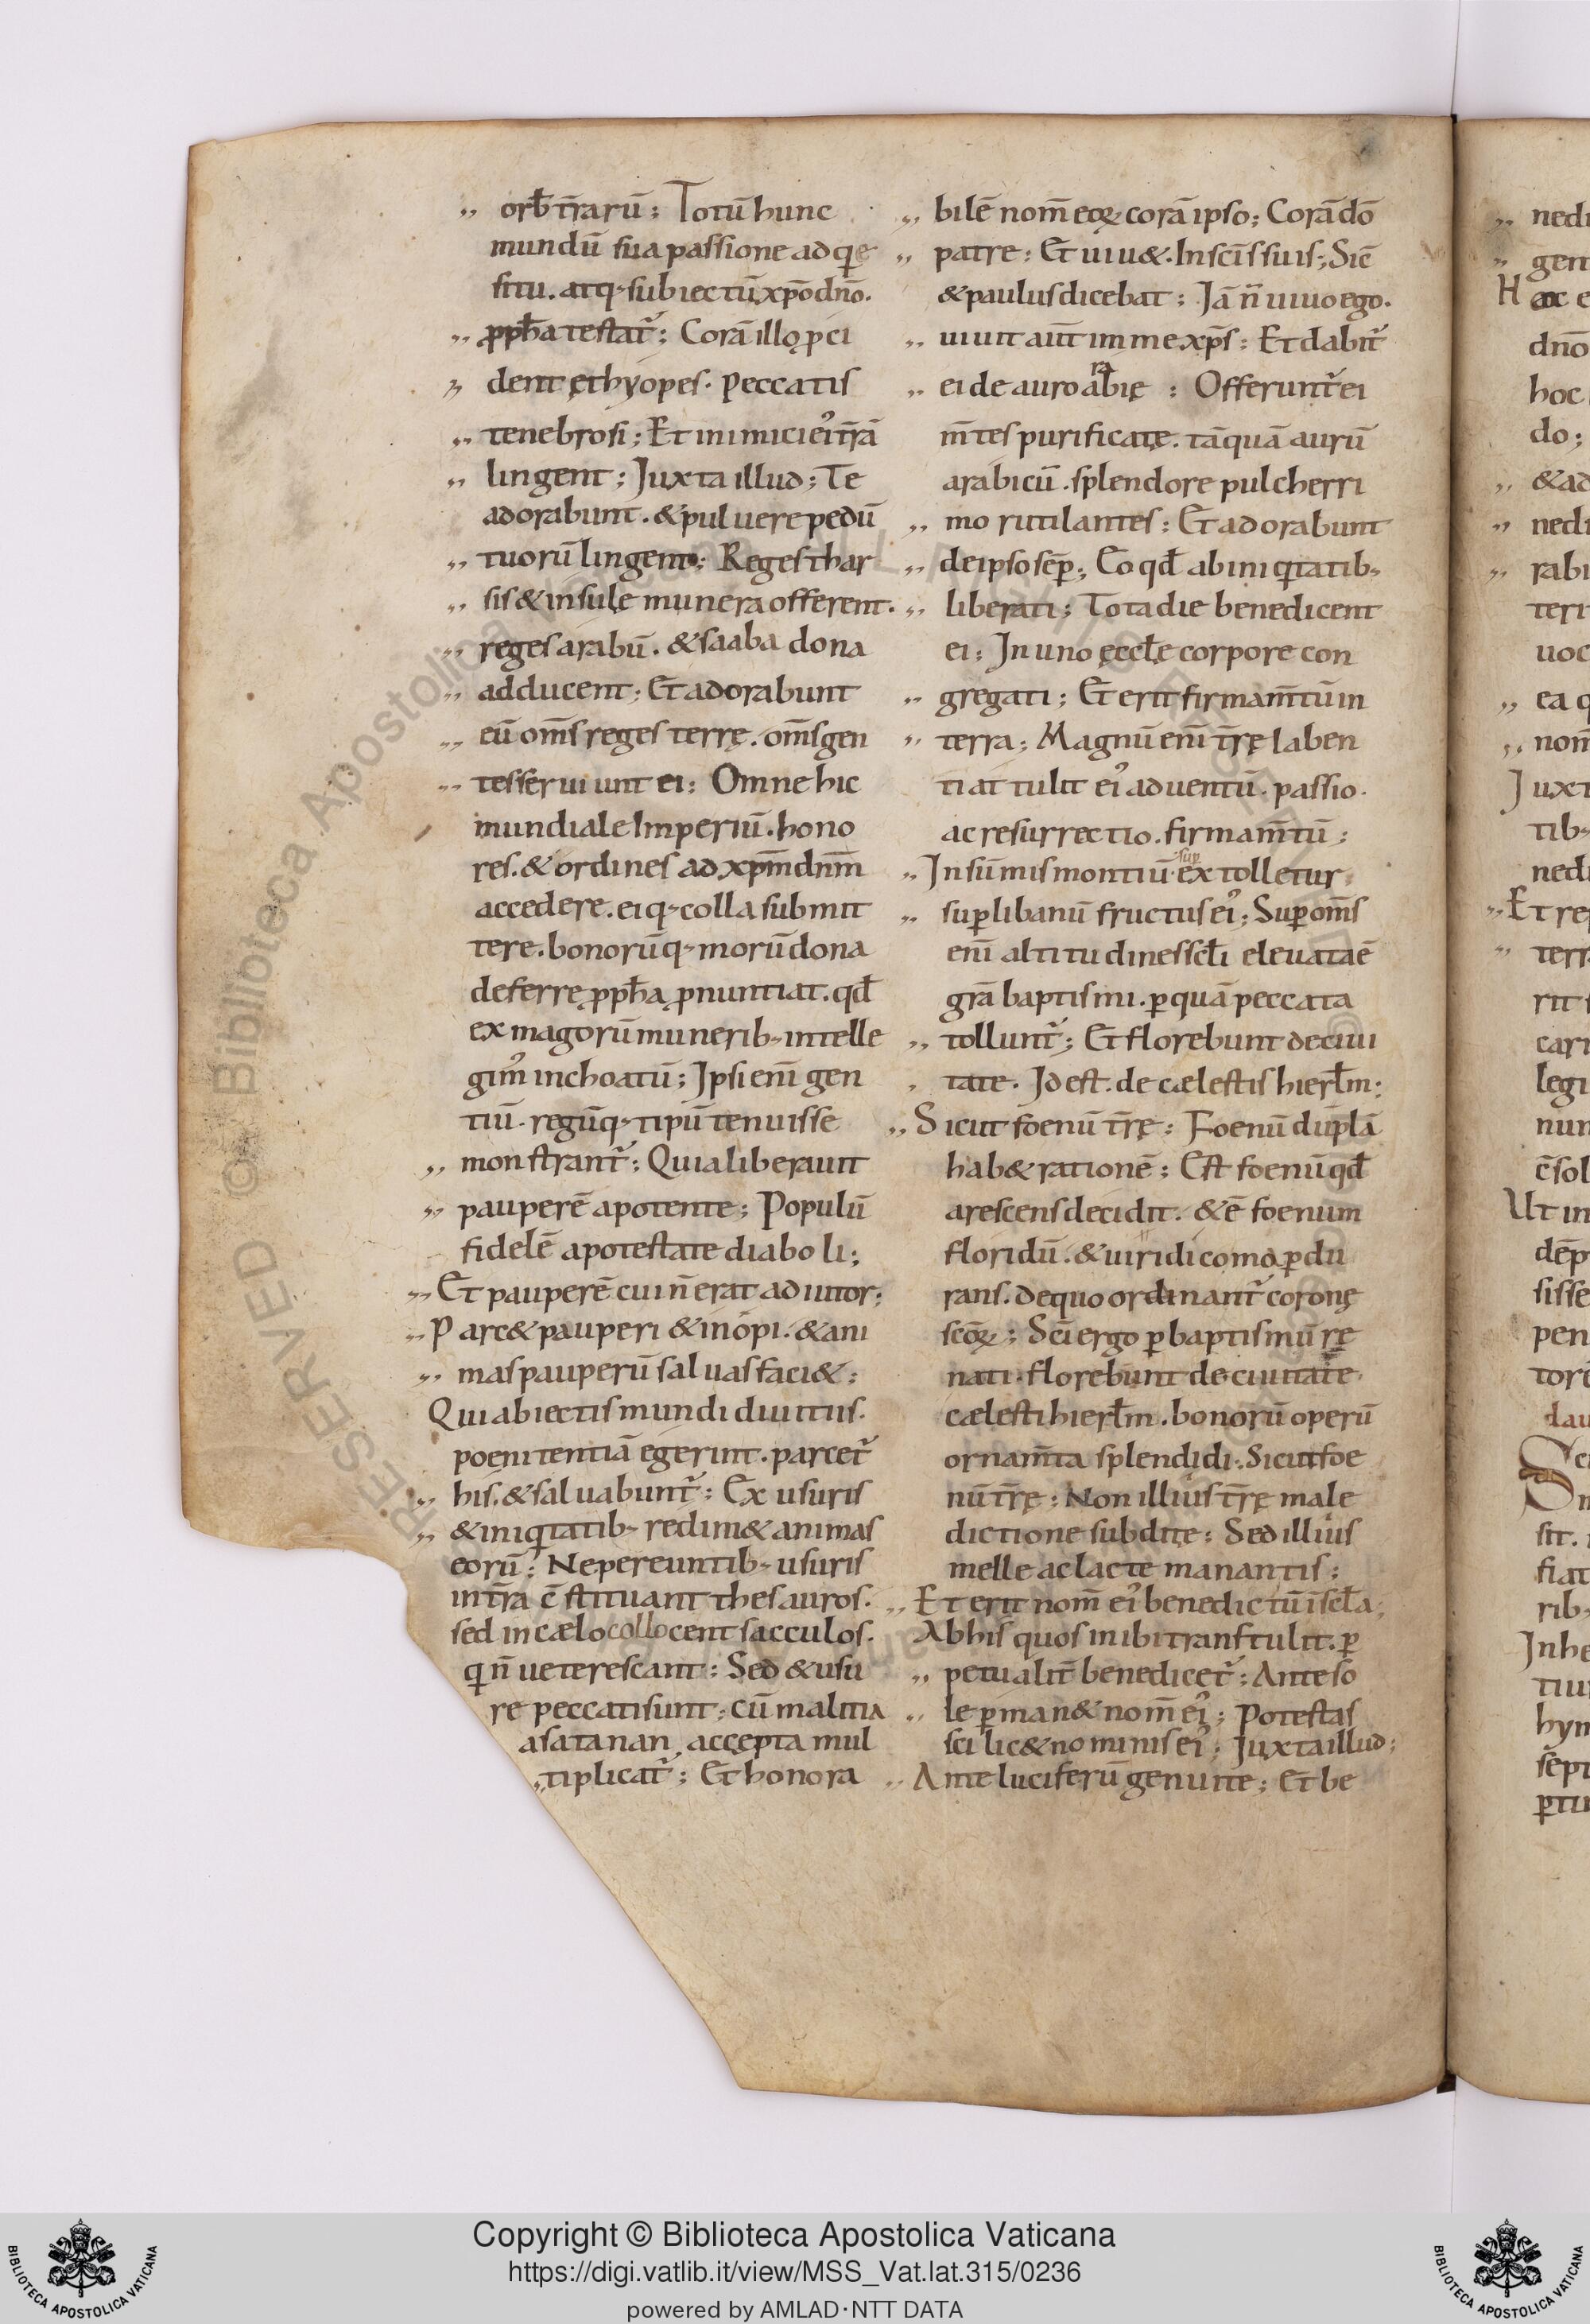 orb̄ t̄rarū; Totū hunc
mundū sua passione adqͥe
situ. atq; subiectū xp̄o dn̄o.
ꝓph̄a testat᷑; Corā illo ꝓci
dent ęthyopes. peccatis
tenebrosi; Et inimici eiꝰ t̄rā
lingent; Juxta illud; Te
adorabunt. & puluere pedū
tuorū lingent; Reges thar
sis & insulę munera offerent.
reges arabū. & saaba dona
adducent; Et adorabunt
eū om̄s reges terrę. om̄s gen
tes seruiunt ei; Omne hic
mundiale Imperiū. hono
res. & ordines ad xp̄m dn̄m
accedere. eiq; colla submit
tere. bonorūq; morū dona
deferre ꝓph̄a ꝓnuntiat. qd̄
ex magorū munerib; intelle
gimꝰ inchoatū; Ipsi enī gen
tiū. regūq; tipū tenuisse
monstrant᷑; Quia liberauit
pauperē a potente; Populū
fidelē a potestate diaboli;
Et pauperē cui n̄ erat adiutor;
Parc& pauperi & inopi. & ani
mas pauperū saluas faci&;
Qui abiectis mundi diuitiis.
poenitentiā egerint. parcet᷑
his. & saluabunt᷑; Ex usuris
& iniqͥtatib; redim& animas
eorū; Ne pereuntib; usuris
in t̄ra c̄stituant thesauros.
sed in cælo collocent sacculos.
qͥ n̄ ueterescant; Sed & usu
re peccati sunt; cū malitia
a satanan accepta mul
tiplicat᷑; Et honora
bilē nom̄ eoꝝ corā ipso; Corā dō
patre; Et uiu&. In sc̄is suis; Sic̄
& paulus dicebat; Jā n̄ uiuo ego.
uiuit aūt in me xp̄s; Et dabit᷑
ra
ei de auro abię; Offerunt᷑ ei
m̄tes purificatę. tāquā aurū
arabicū. splendore pulcherri
mo rutilantes; Et adorabunt
de ipso semp̄; Eo qd̄ ab iniqͥtatib;
liberati; Tota die benedicent
ei; In uno ęccłę corpore con
gregati; Et erit firmam̄tū in
terra; Magnū enī t̄rę laben
ti attulit eiꝰ aduentū. passio.
ac resurrectio. firmam̄tū;
sup
In sūmis montiū extolletur
sup̄ libanū fructus eiꝰ; Sup̄ om̄s
enī altitudines scłi eleuata ē
gr̄a baptismi. ꝑ quā peccata
tollunt᷑; Et florebunt de ciui
tate. Id est. de cælestis hierłm;
Sicut foenū t̄rę; Foenū duplā
hab& rationē; Est foenū qd̄
arescens decidit. & ē foenum
floridū. & uiridi coma ꝑdu
rans. de quo ordinant᷑ coronę
sc̄oꝝ; Sc̄i ergo ꝑ baptismū rę
nati. florebunt de ciuitate
cælesti hierłm. bonorū operū
ornam̄ta splendidi. Sicut foe
nū t̄rę; Non illius t̄rę male
dictione subditę; Sed illius
melle ac lacte manantis;
Et erit nom̄ eiꝰ benedictū ī scła;
Ab his quos inibi transtulit. ꝑ
petualit̄ benedicet᷑; Ante so
le ꝑman& nom̄ eiꝰ; Potestas
scilic& nominis eiꝰ; Juxta illud;
Ante luciferū genui te; Et be
nedi
gen
Hac e
dn̄o
hoc
do;
& ad
nedi
rabi
teri
uoc
ea q
nom̄
Juxt
tib;
nedi
Et rep
terr
rit
car
legi
nun
c̄sol
Ut in
dēp
sisse
pen
tore
dau
Sc
sit.
fiat
rib;
In he
tiu
hym
sept
ꝑtin
RESERVED © Biblioteca Apostolica Vaticana
Copyright © Biblioteca Apostolica Vaticana
https://digi.vatlib.it/view/MSS_Vat.lat.315/0236
powered by AMLAD·NTT DATA
BIBLIOTECA APOSTOLICA VATICANA
BIBLIOTECA APOSTOLICA VATICANA